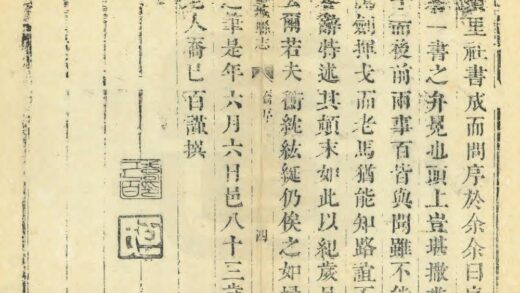 里社書成而問序於余余曰
一書之弁冕也頭上豈堪撒
而後前兩事百皆與聞雖不
劍揮戈而老馬猶能知路誼不
辭特述其顛末如此以紀歲月
云爾若夫衡紞紘綖仍俟之如
縣志 序 四
之筆是年六月六日邑八十三歲
人喬已百謹撰